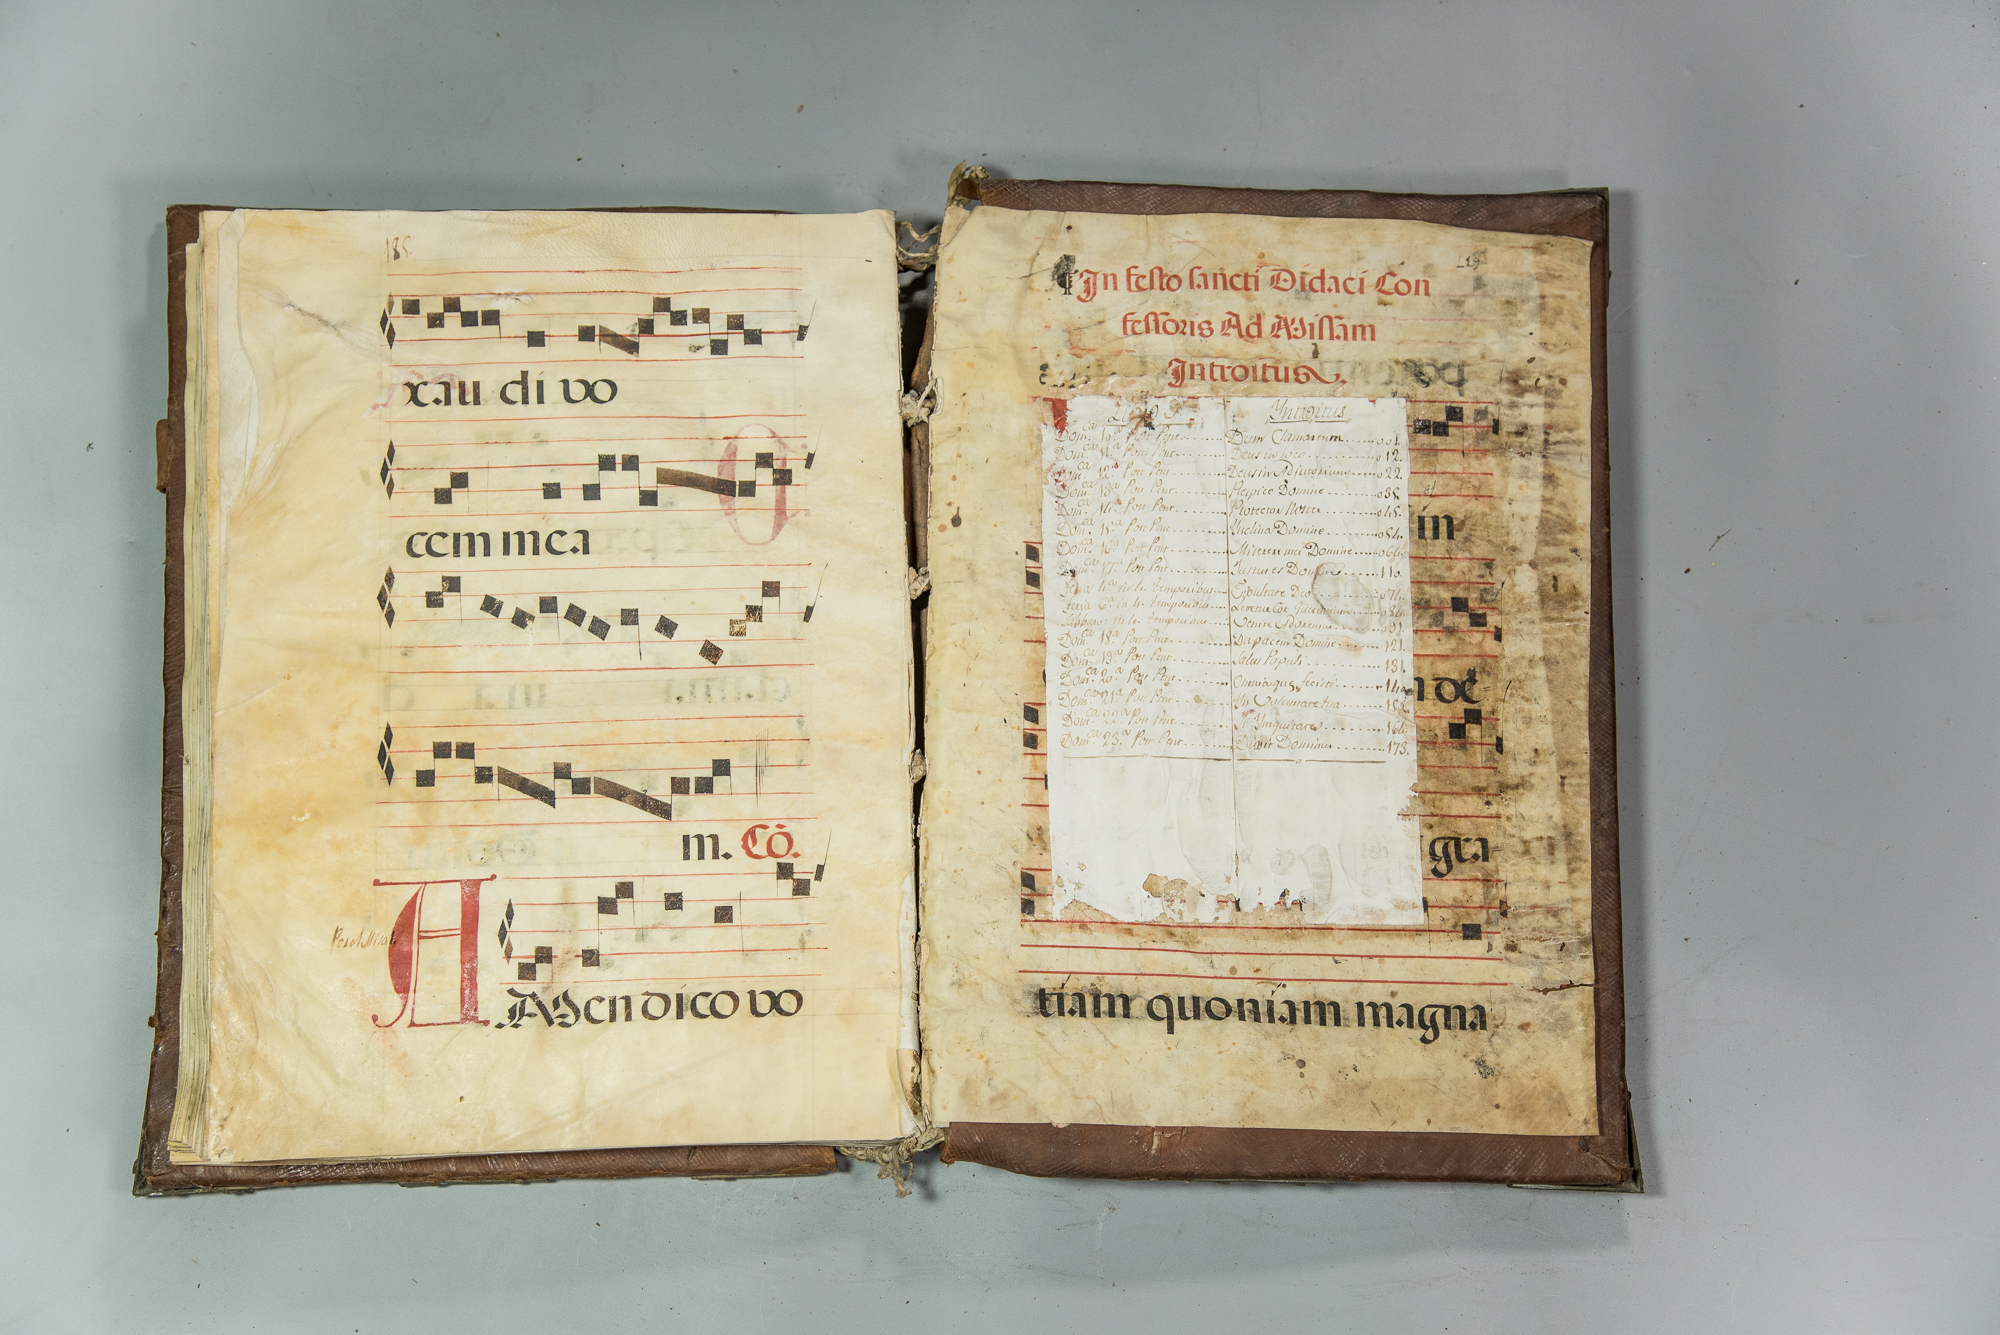 185
xau di vo
cem mea
m. Cõ.
AMen dico vo
In festo sancti Didaci Con
fessoris Ad Missam
Introitus.
Yntroitus
Dom.ca 10.a Post Pent. Dum Clamarem 001.
Dom.ca 11.a Post Pent. Deus in loco 012.
Dom.ca 12.a Post Pent. Deus in Adiutorium 022.
Dom.ca 13.a Post Pent. Respice Domine 035.
Dom.ca 14.a Post Pent. Protector Noster 045.
Dom.ca 15.a Post Pent. Ynclina Domine
Dom.ca 16.a Post Pent. Miserere mei Domine
Dom.ca 17.a Post Pent. Justus es Domine 110.
Feria 4.a in 4. temporibus Exultate Deo
Feria 6.a in 4. temporibus Letetur Cor
Sabbato in 4. temporibus Venite Adoremus 091.
Dom.ca 18.a Post Pent. Da pacem Domine 121.
Dom.ca 19.a Post Pent. Salus Populi 131.
Dom.ca 20.a Post Pent. Omnia que fecisti
Dom.ca 21.a Post Pent. In Voluntate tua
Dom.ca 22.a Post Pent. Si Yniquitates
Dom.ca 23.a Post Pent. Dicit Dominus 173.
in
n de
gra
tiam quoniam magna